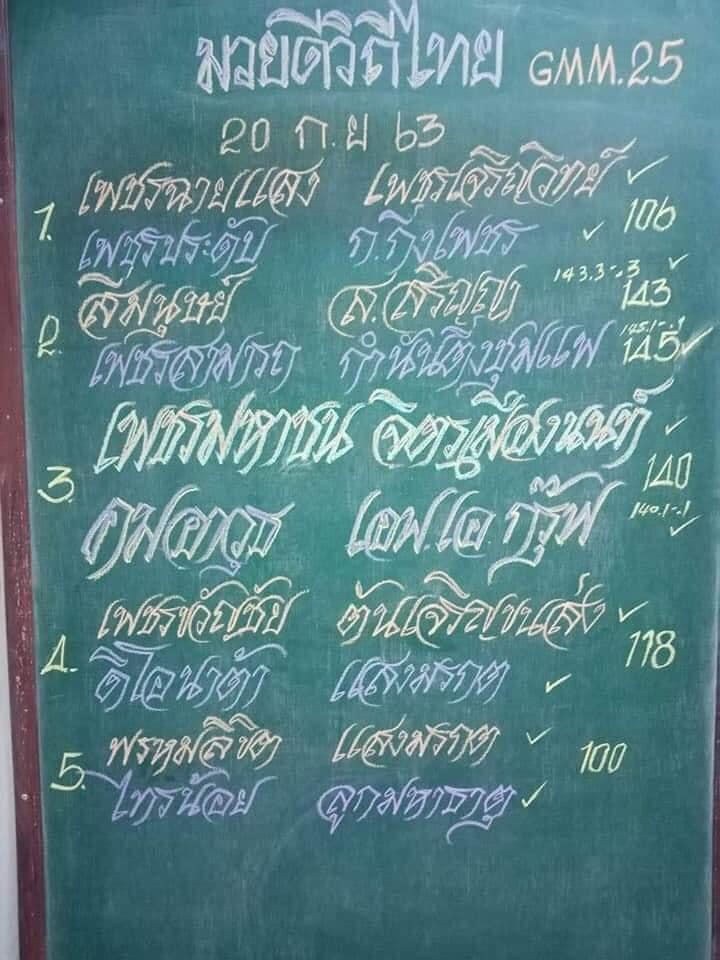 มวยดีวิถีไทย GMM.25
20 ก.ย 63
1. เพชรฉายแสง เพชรเจริญวิทย์ ✓
เพชรประดับ ก.กิ่งเพชร ✓ 106
143.3-.3 ✓
2. สีมนุษย์ ส.สริญญา 143
145.1-.1
เพชรสามารถ กำนันติ่งชุมแพ 145 ✓
3. เพชรมหาชน จิตรเมืองนนท์ ✓ 140
140.1-.1
คมอาวุธ เอฟ.เอ.กรุ๊ฟ ✓
4. เพชรขวัญชัย ตันเจริญขนส่ง ✓ 118
ดีไอน่าต้า แสงมรกต ✓
5. พรหมลิขิต แสงมรกต ✓ 100
ไทรน้อย ลูกมหาธาตุ ✓